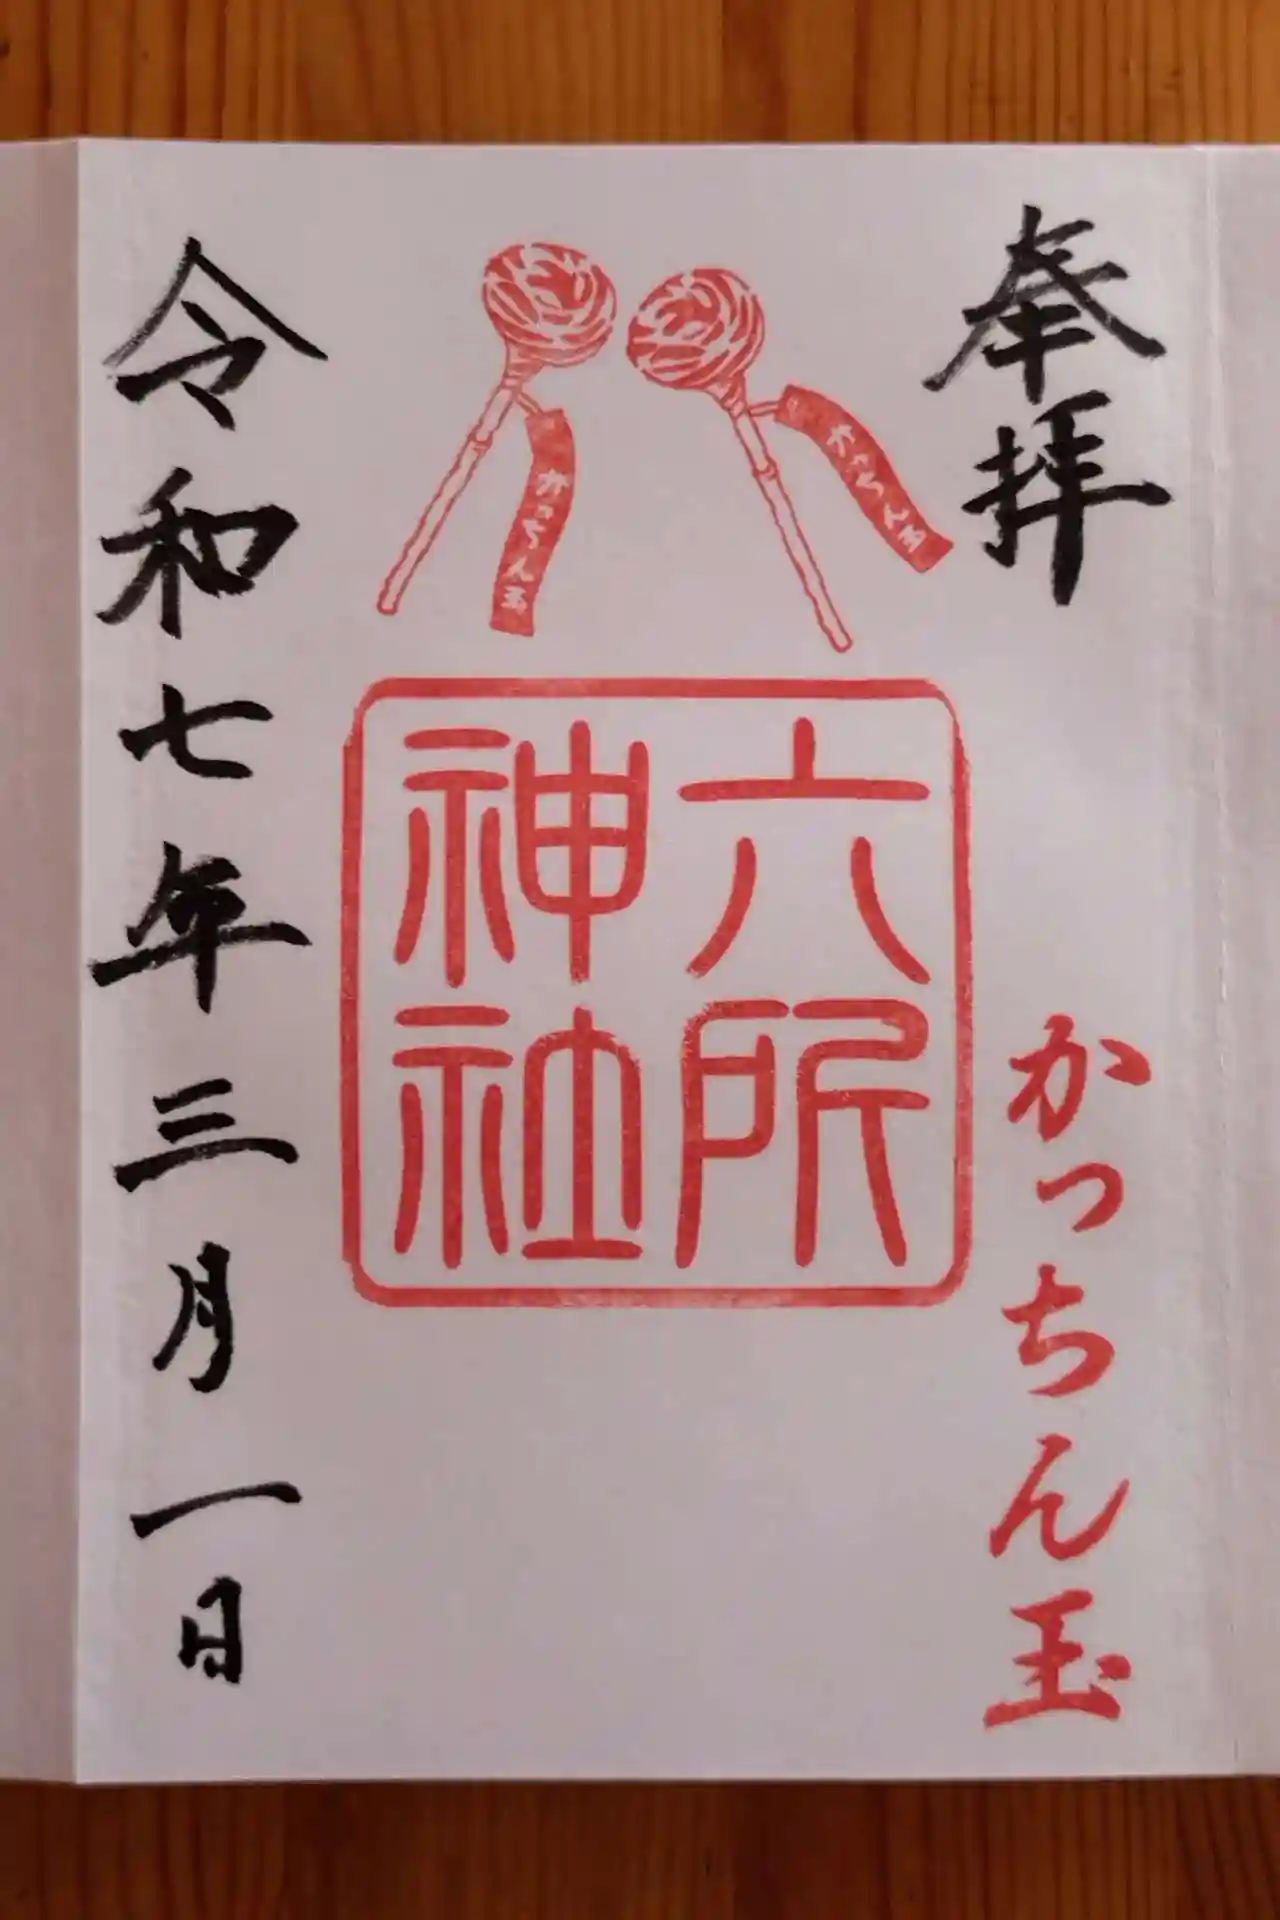 奉拝
かっちん玉
かっちん玉
かっちん玉
六所
神社
令和七年三月一日